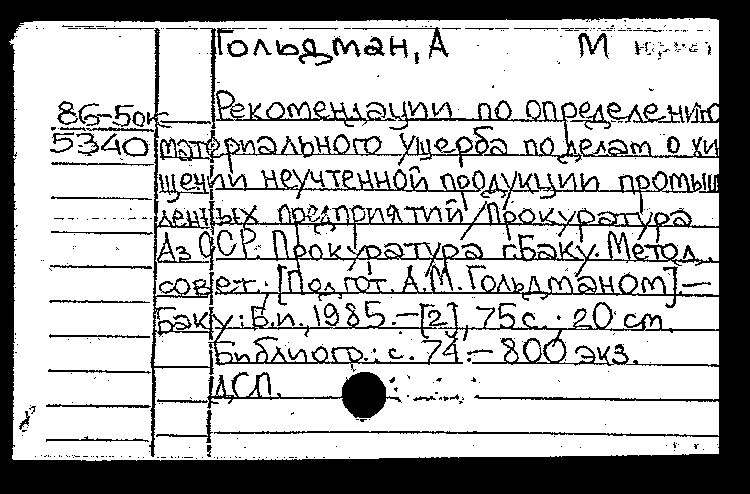 Гольдман, А М
86-5ок Рекомендации по определению
5340 материального ущерба по делам о хи
щении неучтенной продукции промыш
ленных предприятий/Прокуратура
Аз ССР. Прокуратура г.Баку. Метод.
совет.; [Подгот. А.М. Гольдманом].—
Баку: Б.и., 1985.—[2], 75с.; 20 см.
Библиогр.: с. 74.— 800 экз.
ДСП.